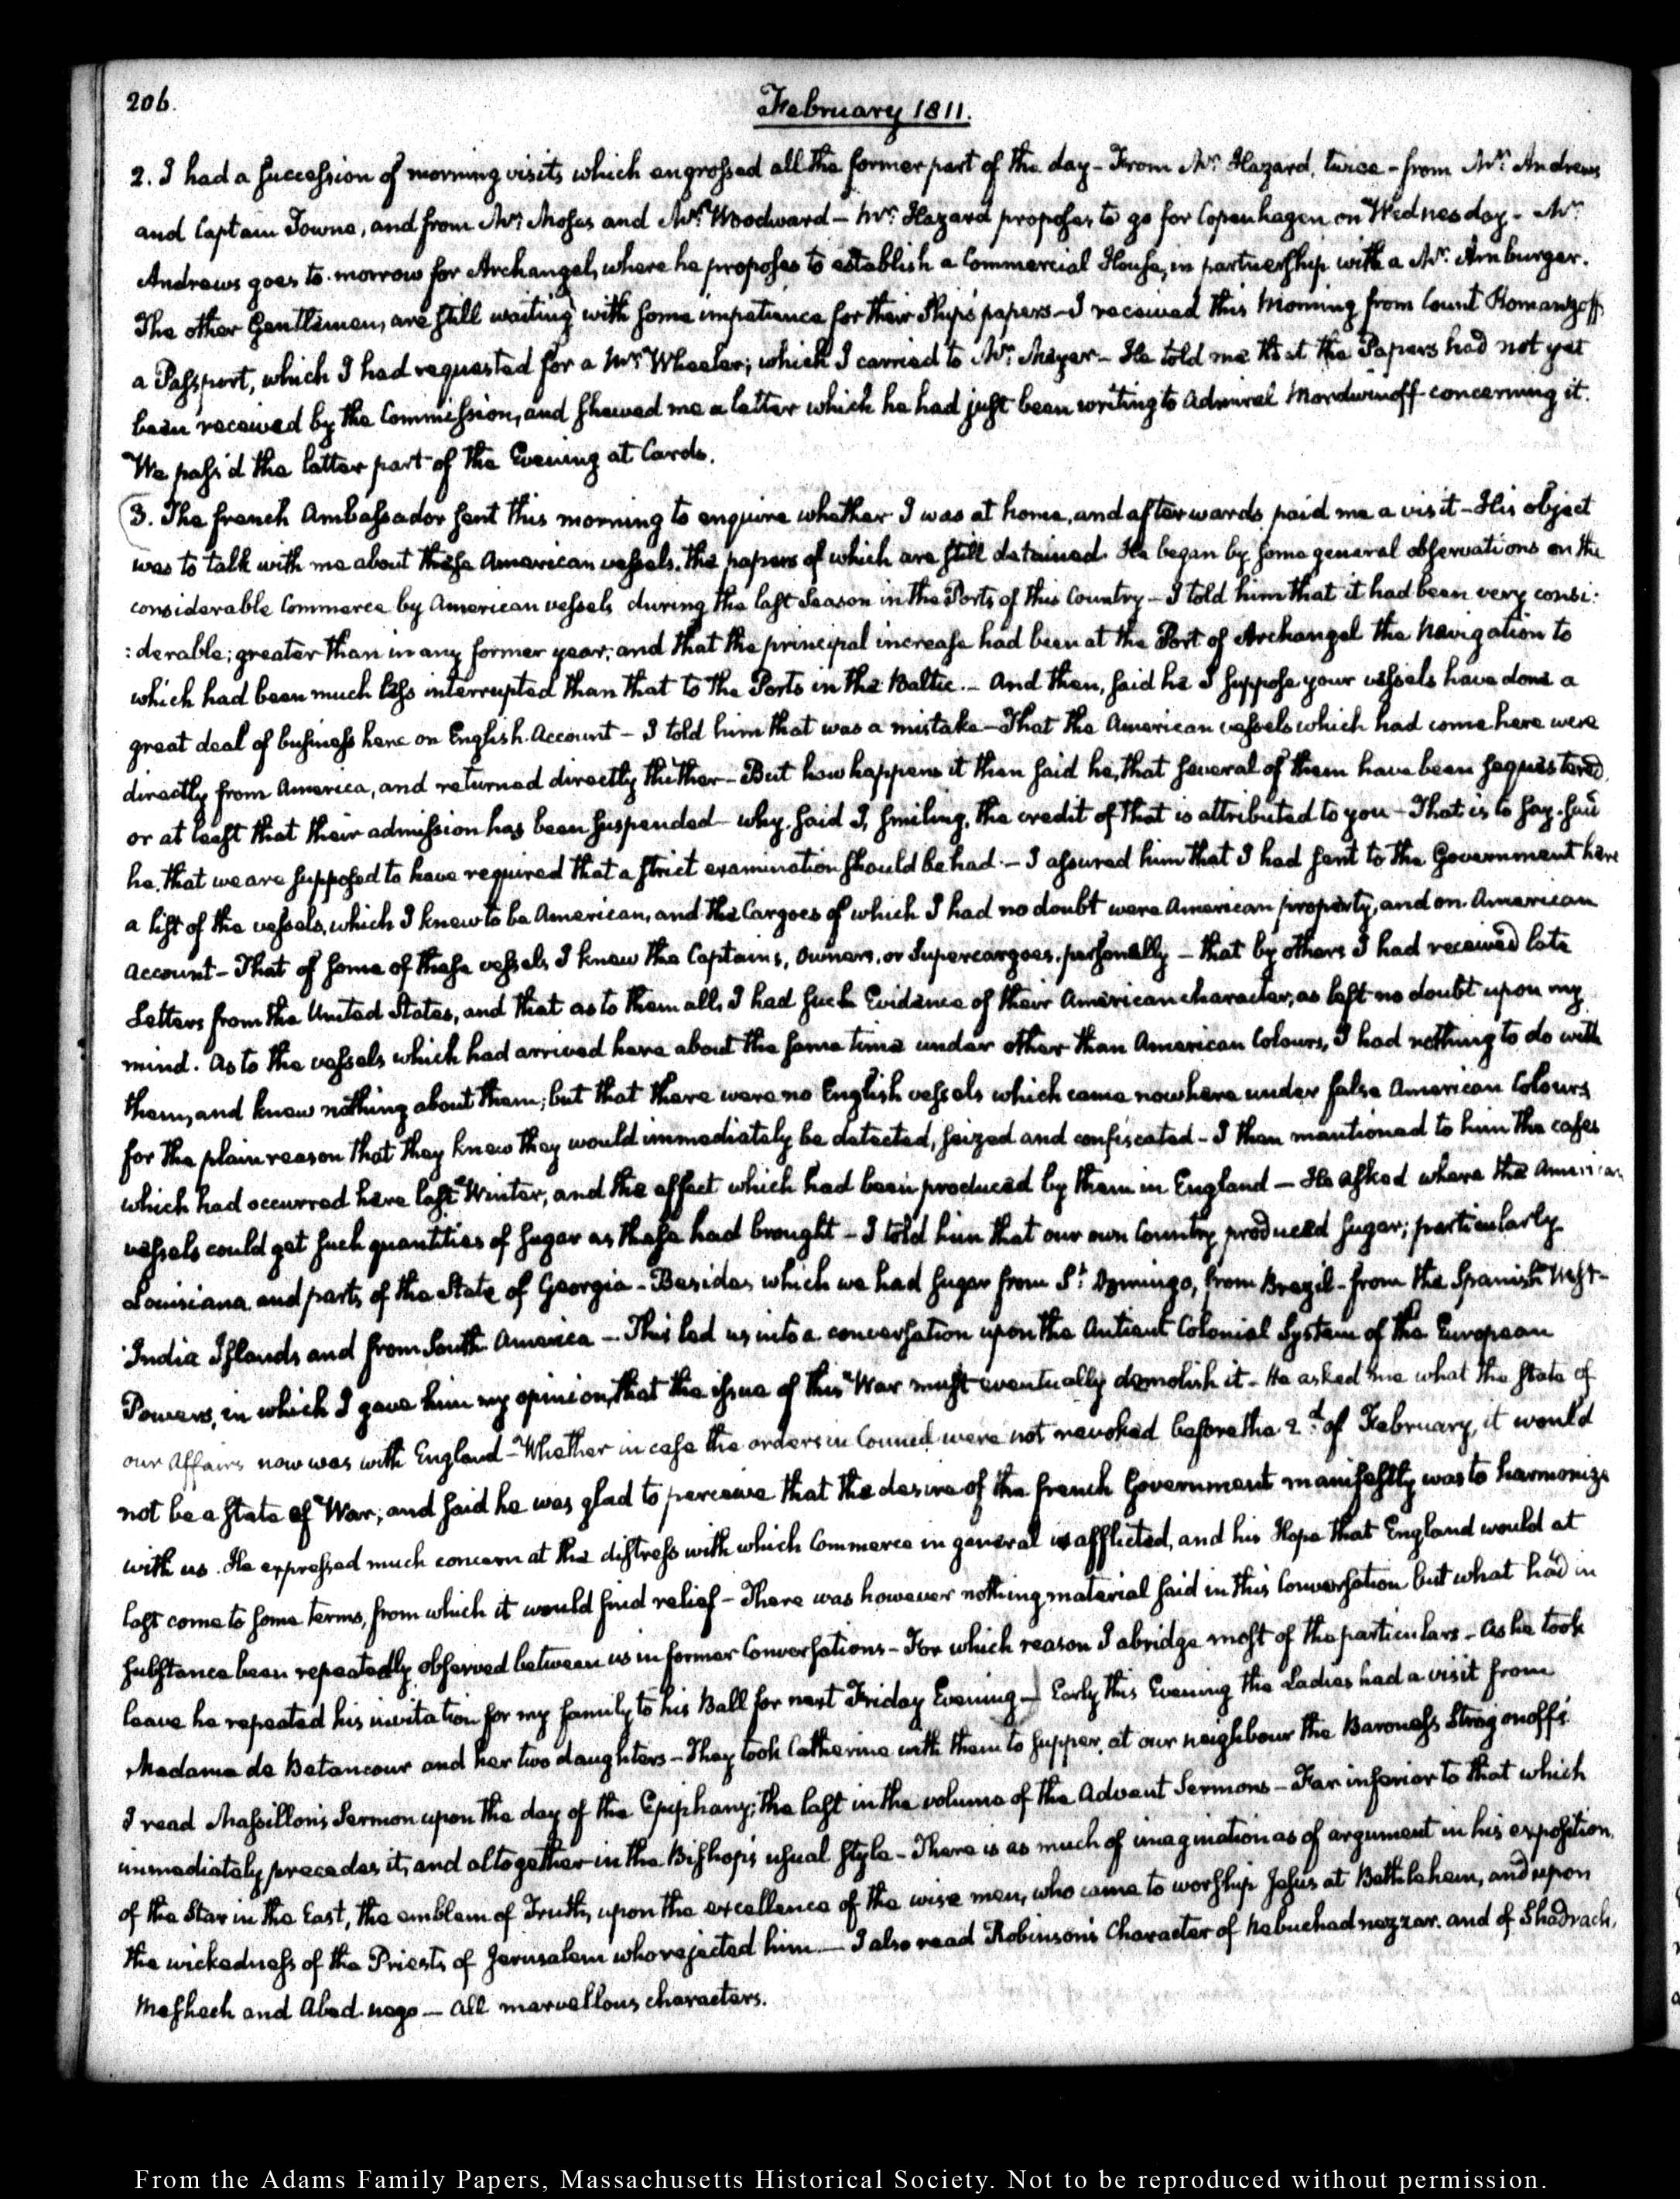 206.
February 1811.
2. I had a succession of morning visits which engrossed all the former part of the day - From Mr. Hazard, twice - from Mr. Andrews
and Captain Towne, and from Mr. Moses and Mr. Woodward - Mr. Hazard proposes to go for Copenhagen on Wednesday - Mr.
Andrews goes to-morrow for Archangel, where he proposes to establish a Commercial House, in partnership with a Mr. Amburger.
The other Gentlemen, are still waiting with some impatience for their Ship's papers - I received this Morning from Count Romanzoff,
a Passport, which I had requested for a Mr. Wheeler; which I carried to Mr. Meyer - He told me that the Papers had not yet
been received by the Commission, and shewed me a letter which he had just been writing to Admiral Mordwinoff concerning it.
We pass'd the latter part of the Evening at Cards.
3. The french Ambassador sent this morning to enquire whether I was at home, and afterwards paid me a visit - His object
was to talk with me about these American vessels, the papers of which are still detained. He began by some general observations on the
considerable Commerce by American vessels during the last Season in the Ports of this Country - I told him that it had been very consi:
:derable; greater than in any former year; and that the principal increase had been at the Port of Archangel the Navigation to
which had been much less interrupted than that to the Ports in the Baltic. - And then, said he I suppose your vessels have done a
great deal of business here on English Account - I told him that was a mistake - That the American vessels which had come here were
directly from America, and returned directly thither - But how happens it then said he, that several of them have been sequestered,
or at least that their admission has been suspended - why, said I, smiling, the credit of that is attributed to you - That is to say, said
he, that we are supposed to have required that a strict examination should be had. - I assured him that I had sent to the Government here
a list of the vessels, which I knew to be American, and the Cargoes of which I had no doubt were American property, and on American
account - That of some of these vessels I knew the Captains, Owners, or Supercargoes, personally - that by others I had received late
Letters from the United States, and that as to them all, I had such Evidence of their American character, as left no doubt upon my
mind. As to the vessels which had arrived here about the same time under other than American Colours, I had nothing to do with
them, and knew nothing about them; but that there were no English vessels which came now here under false American Colours,
for the plain reason that they knew they would immediately be detected, seized and confiscated - I then mentioned to him the cases
which had occurred here last Winter, and the effect which had been produced by them in England - He asked where the American
vessels could get such quantities of Sugar as these had brought - I told him that our own Country produced Sugar; particularly
Louisiana, and parts of the State of Georgia - Besides which we had Sugar from St. Domingo, from Brazil - from the Spanish West-
India Islands and from South America - This led us into a conversation upon the Antient Colonial System of the European
Powers, in which I gave him my opinion, that the issue of this War must eventually demolish it - He asked me what the State of
our Affairs now was with England - Whether in case the orders in Council were not revoked before the 2d. of February, it would
not be a State of War; and said he was glad to perceive that the desire of the french Government manifestly was to harmonize
with us. He expressed much concern at the distress with which Commerce in general is afflicted, and his Hope that England would at
last come to some terms, from which it would find relief - There was however nothing material said in this Conversation but what had in
substance been repeatedly observed between us in former Conversations - For which reason I abridge most of the particulars - As he took
leave he repeated his invitation for my family to his Ball for next Friday Evening - Early this Evening the Ladies had a visit from
Madame de Betancour and her two daughters - They took Catherine with them to supper, at our neighbour the Baroness Strogonoff's.
I read Massillon's Sermon upon the day of the Epiphany; the last in the volume of the Advent Sermons - Far inferior to that which
immediately precedes it, and altogether in the Bishop's usual style - There is as much of imagination as of argument in his exposition,
of the Star in the East, the emblem of Truth, upon the excellence of the wise men, who came to worship Jesus at Bethlehem, and upon
the wickedness of the Priests of Jerusalem who rejected him - I also read Robinson's Character of Nebuchadnezzar, and of Shadrach,
Meshech and Abed-nego - All marvellous characters.
From the Adams Family Papers, Massachusetts Historical Society. Not to be reproduced without permission.